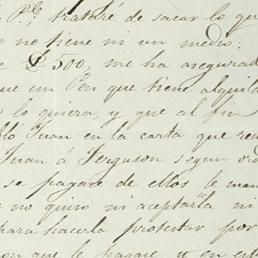 trataré de sacar lo qu
no tiene ni un medio.
500, me ha asegurad
ue un Pen que tiene alquil
lo quiera, y que al fin
Juan en la carta que re
Juan á Ferguson segun or
se pagare de ellos le man
no quiso ni aceptarla ni
para hacerla protestar por
que le pague y en est